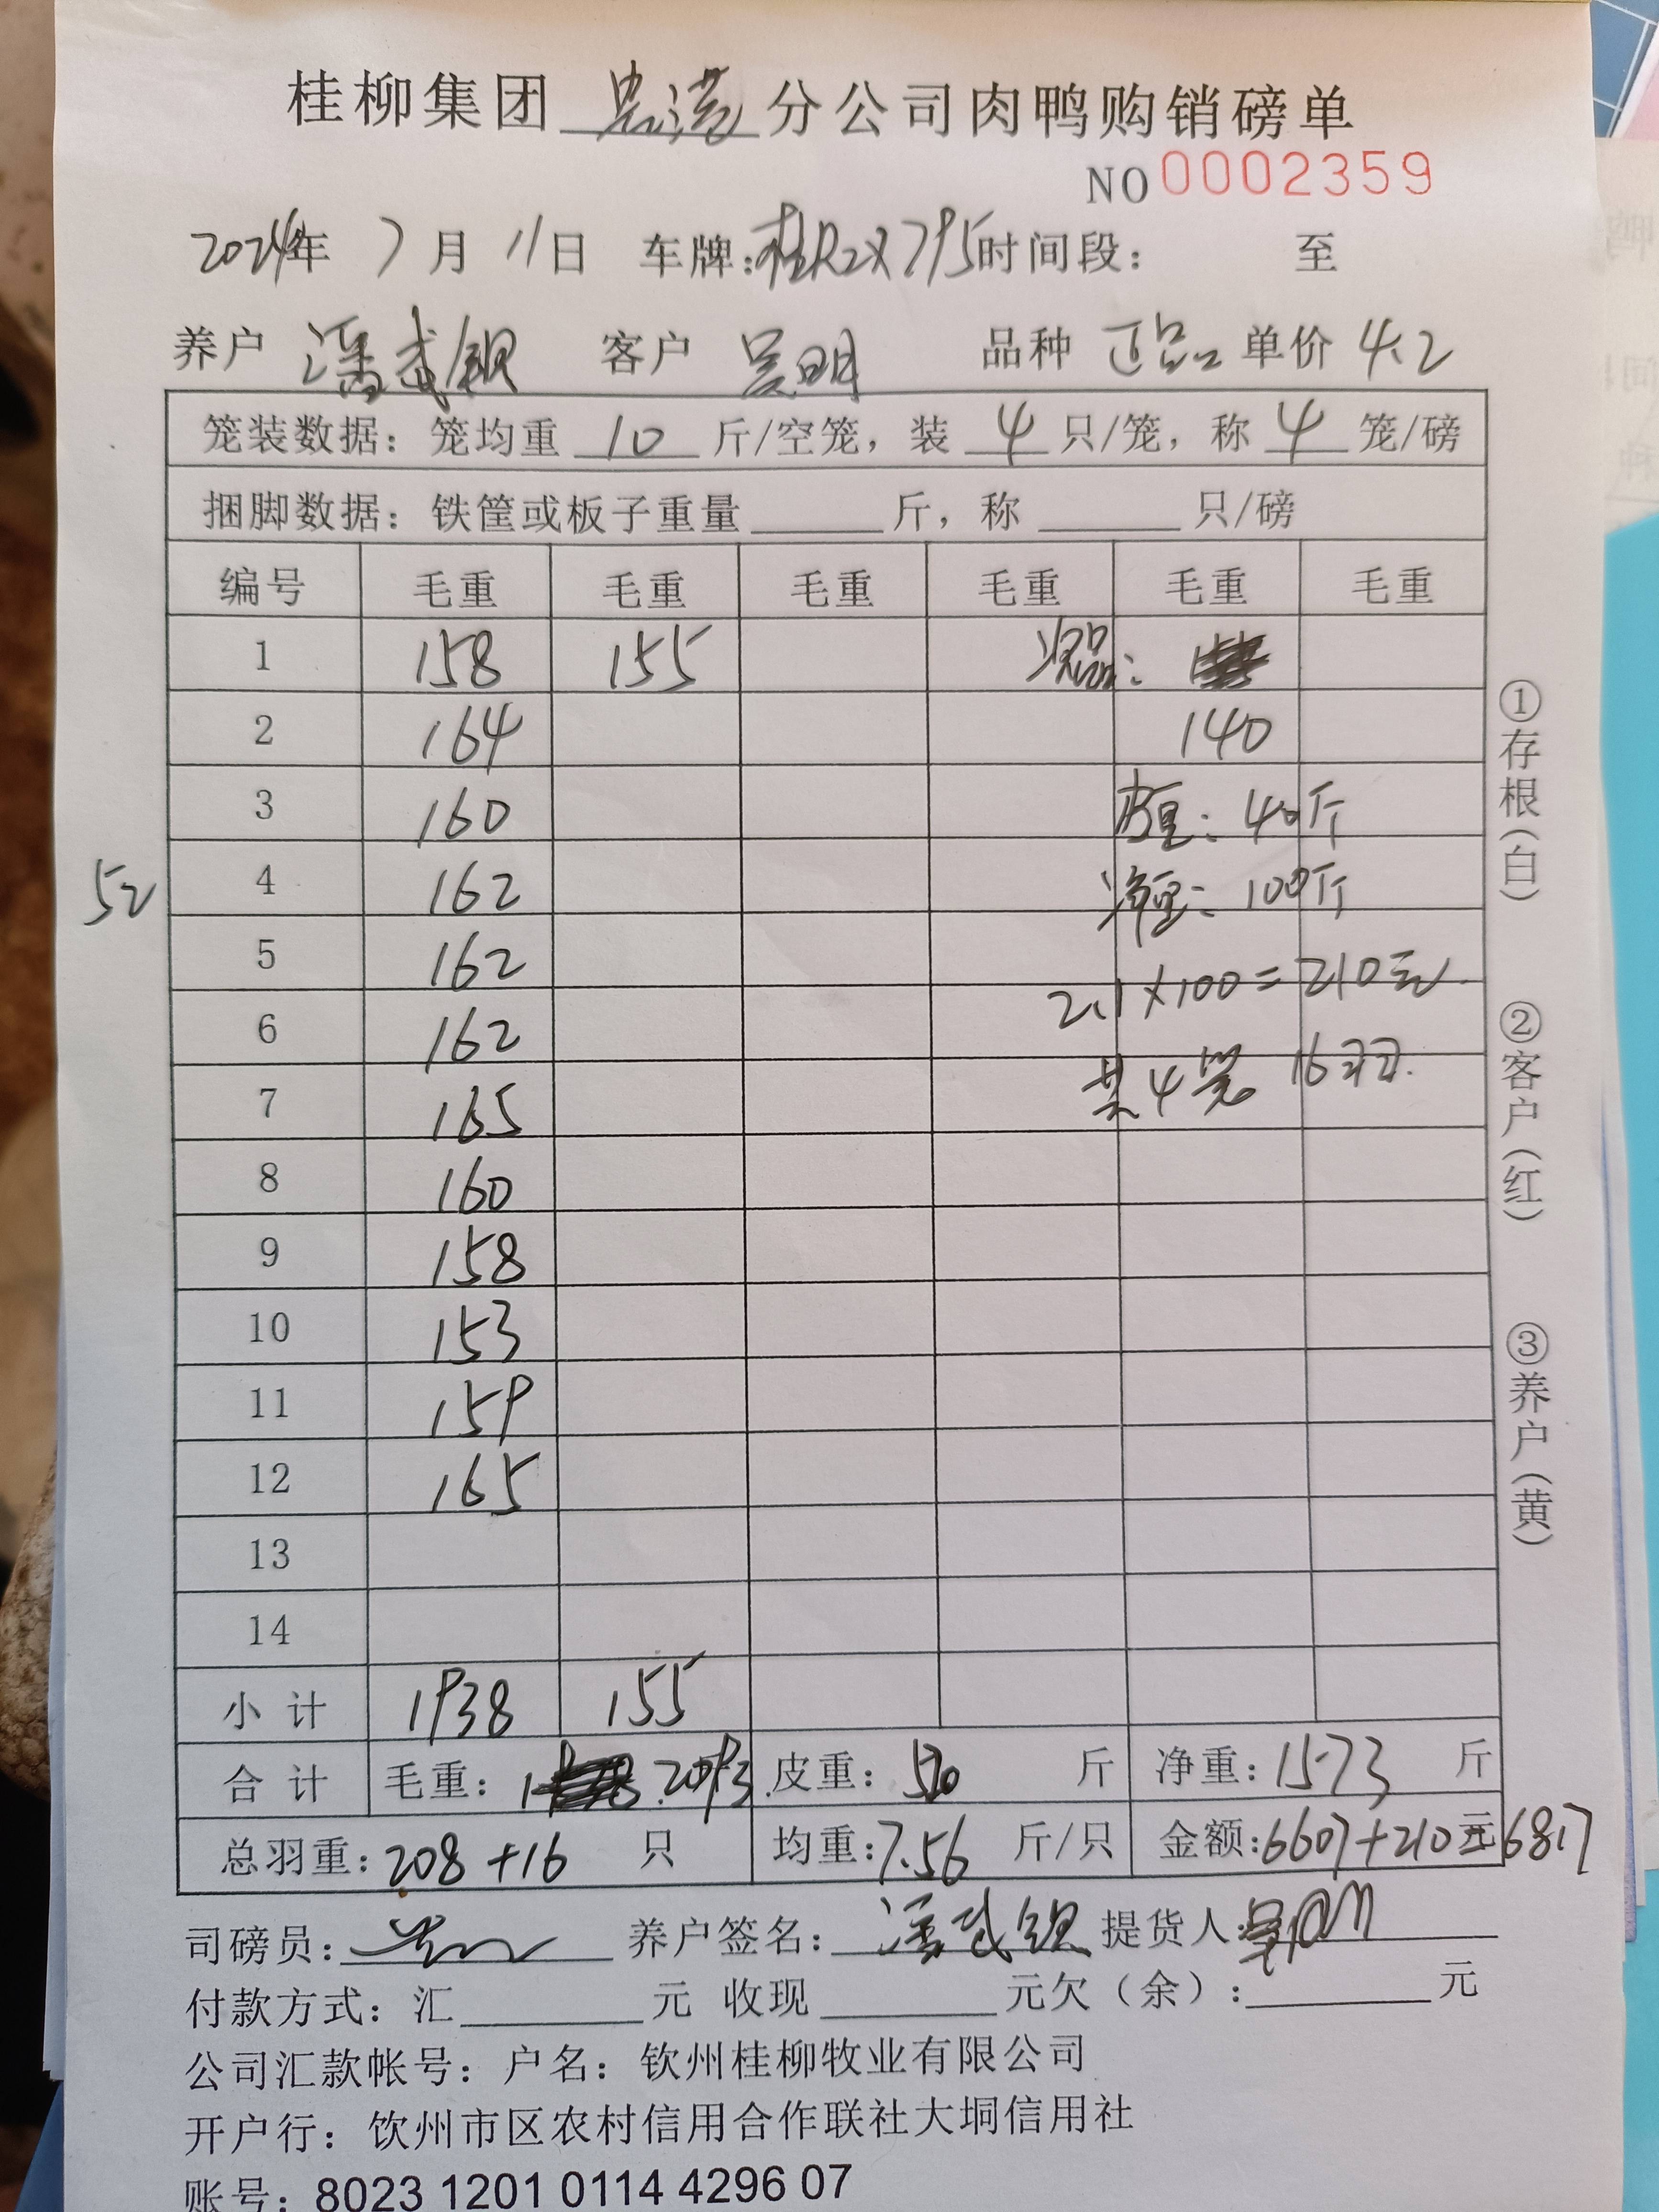 桂柳集团 贵港 分公司肉鸭购销磅单
NO 0002359
2024年 7月 11日 车牌:桂R2X795 时间段: 至
养户 潘武 客户 吴明 品种 正品 单价 4.2
笼装数据: 笼均重 10 斤/空笼, 装 4 只/笼, 称 4 笼/磅
捆脚数据: 铁筐或板子重量 斤, 称 只/磅
编号 毛重 毛重 毛重 毛重 毛重 毛重
1 158 155 次品:
2 164 140
3 160 皮重: 40斤
52
4 162 净重: 100斤
5 162 2.1×100=210元.
6 162
7 165 共4笼 16羽.
8 160
9 158
10 153
11 159
12 165
13
14
小计 1938 155
合计 毛重: 2093. 皮重: 520 斤 净重: 1573 斤
总羽重: 208+16 只 均重: 7.56 斤/只 金额: 6607+210元 6817
司磅员: 养户签名: 潘武 提货人 吴明
付款方式: 汇 元 收现 元欠(余): 元
公司汇款帐号: 户名: 钦州桂柳牧业有限公司
开户行: 钦州市区农村信用合作联社大垌信用社
账号: 8023 1201 0114 4296 07
①存根(白)
②客户(红)
③养户(黄)